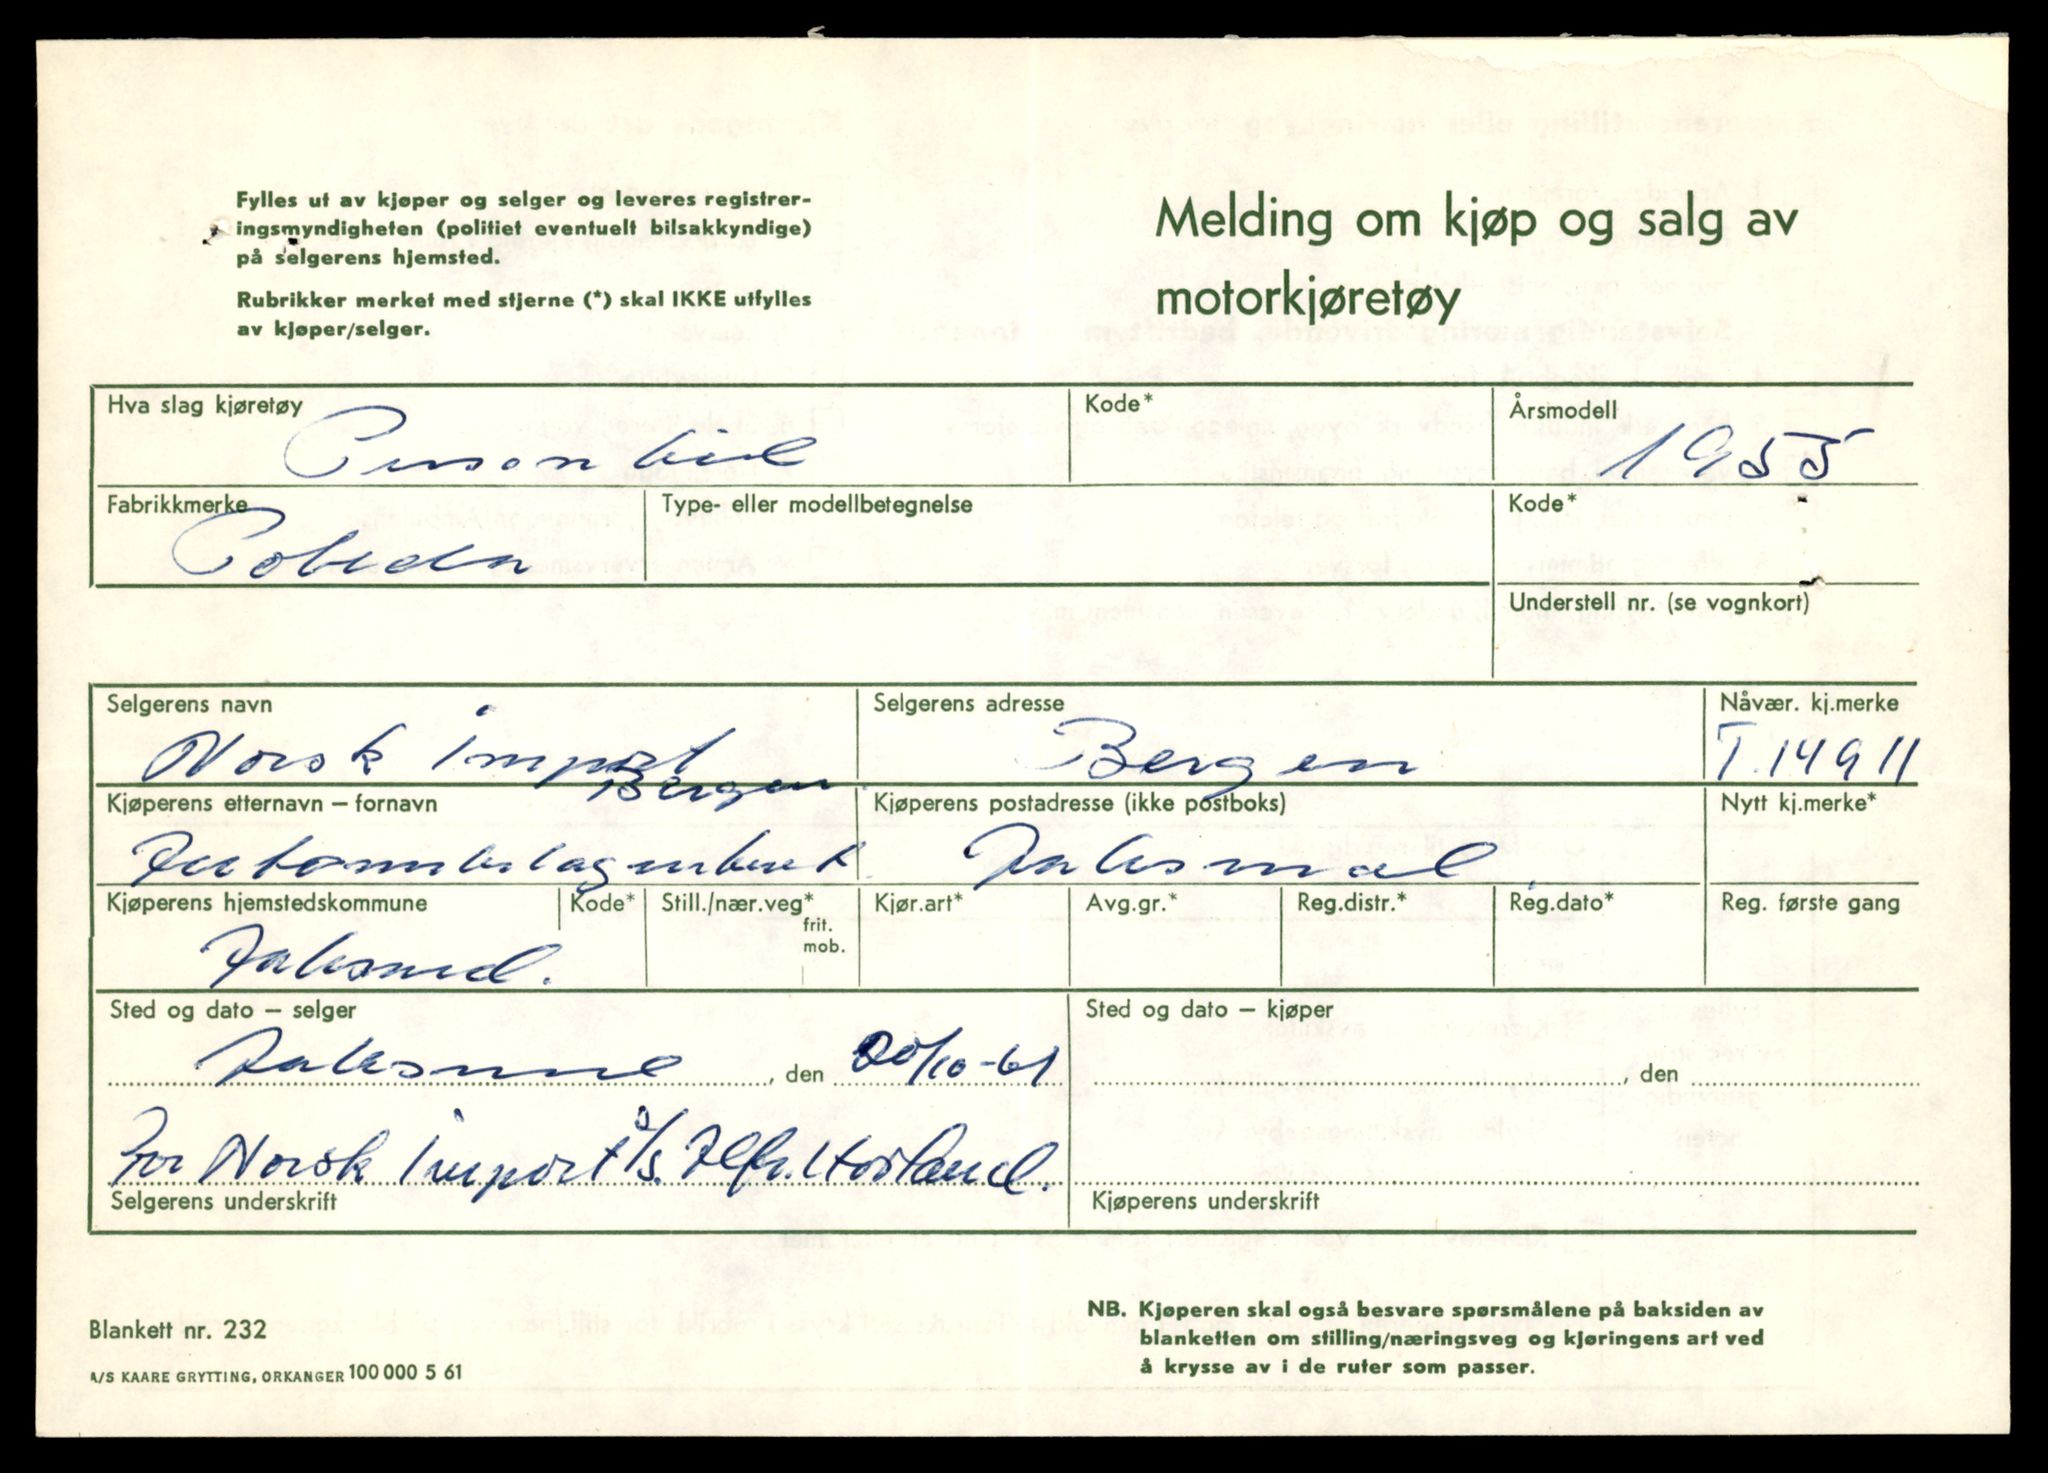 Fylles ut av kjøper og selger og leveres registrer-
ingsmyndigheten (politiet eventuelt bilsakkyndige)
på selgerens hjemsted.
Rubrikker merket med stjerne (*) skal IKKE utfylles
av kjøper/selger.
Melding om kjøp og salg av
motorkjøretøy
Hva slag kjøretøy
Personbil
Kode*
Årsmodell
1955
Fabrikkmerke
Pobeda
Type- eller modellbetegnelse
Kode*
Understell nr. (se vognkort)
Selgerens navn
Norsk import
Bergen
Selgerens adresse
Bergen
Nåvær. kj.merke
T.14911
Kjøperens etternavn – fornavn
Kjøperens postadresse (ikke postboks)
Jaksmal
Nytt kj.merke*
Kjøperens hjemstedskommune
Kode*
Still./nær.veg*
frit.
mob.
Kjør.art*
Avg.gr.*
Reg.distr.*
Reg.dato*
Reg. første gang
Sted og dato – selger
, den 20/10-61
Sted og dato – kjøper
, den
For Norsk Import A/S. Alfr. Hovland.
Selgerens underskrift
Kjøperens underskrift
Blankett nr. 232
A/S KAARE GRYTTING, ORKANGER 100 000 5 61
NB. Kjøperen skal også besvare spørsmålene på baksiden av
blanketten om stilling/næringsveg og kjøringens art ved
å krysse av i de ruter som passer.